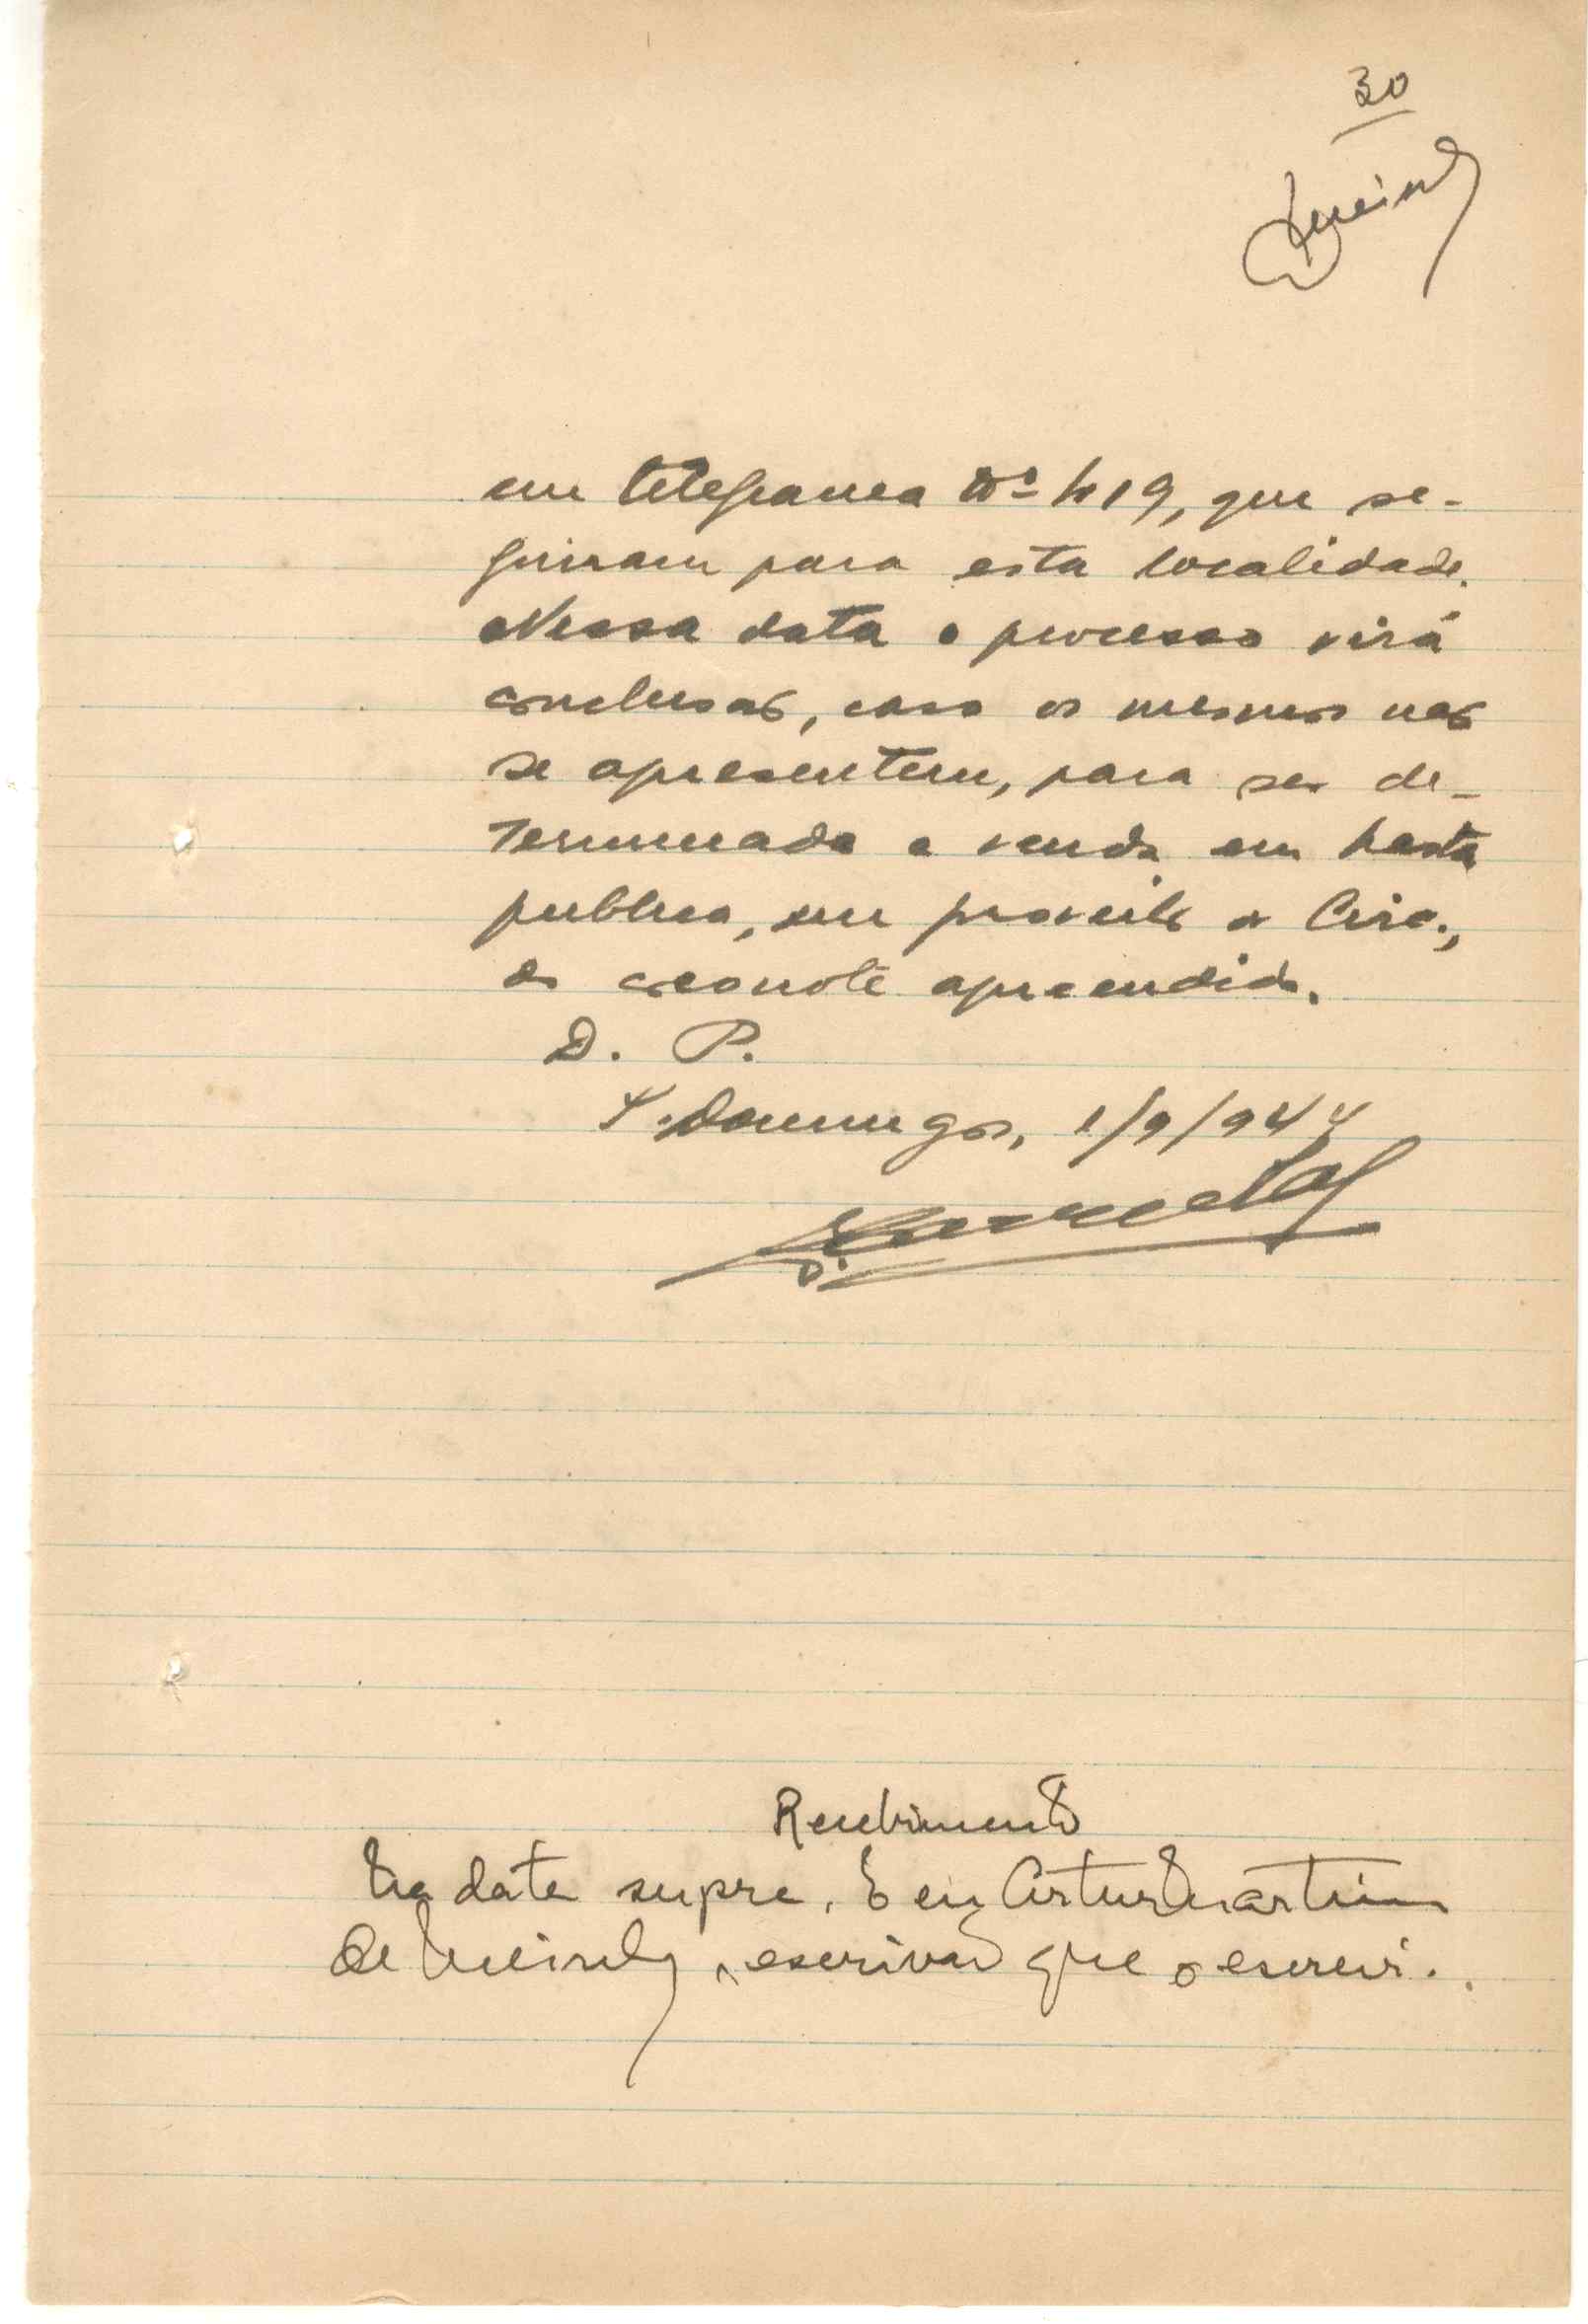 30
Queiroz
em telegrama Nº 419, que se-
guiram para esta localidade.
Nessa data o processo virá
conclusos, caso os mesmos não
se apresentem, para ser de-
terminada a venda em hasta
publica, em proveito
do apreendido.
D. P.
S. Domingos, 1/9/944
Recebimento
Na data supra. E eu Artur Martins
de Queiroz, escrivão que o escrevi.